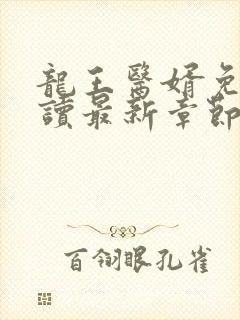 龍王醫婿免
讀最新章節
百翎眼孔雀